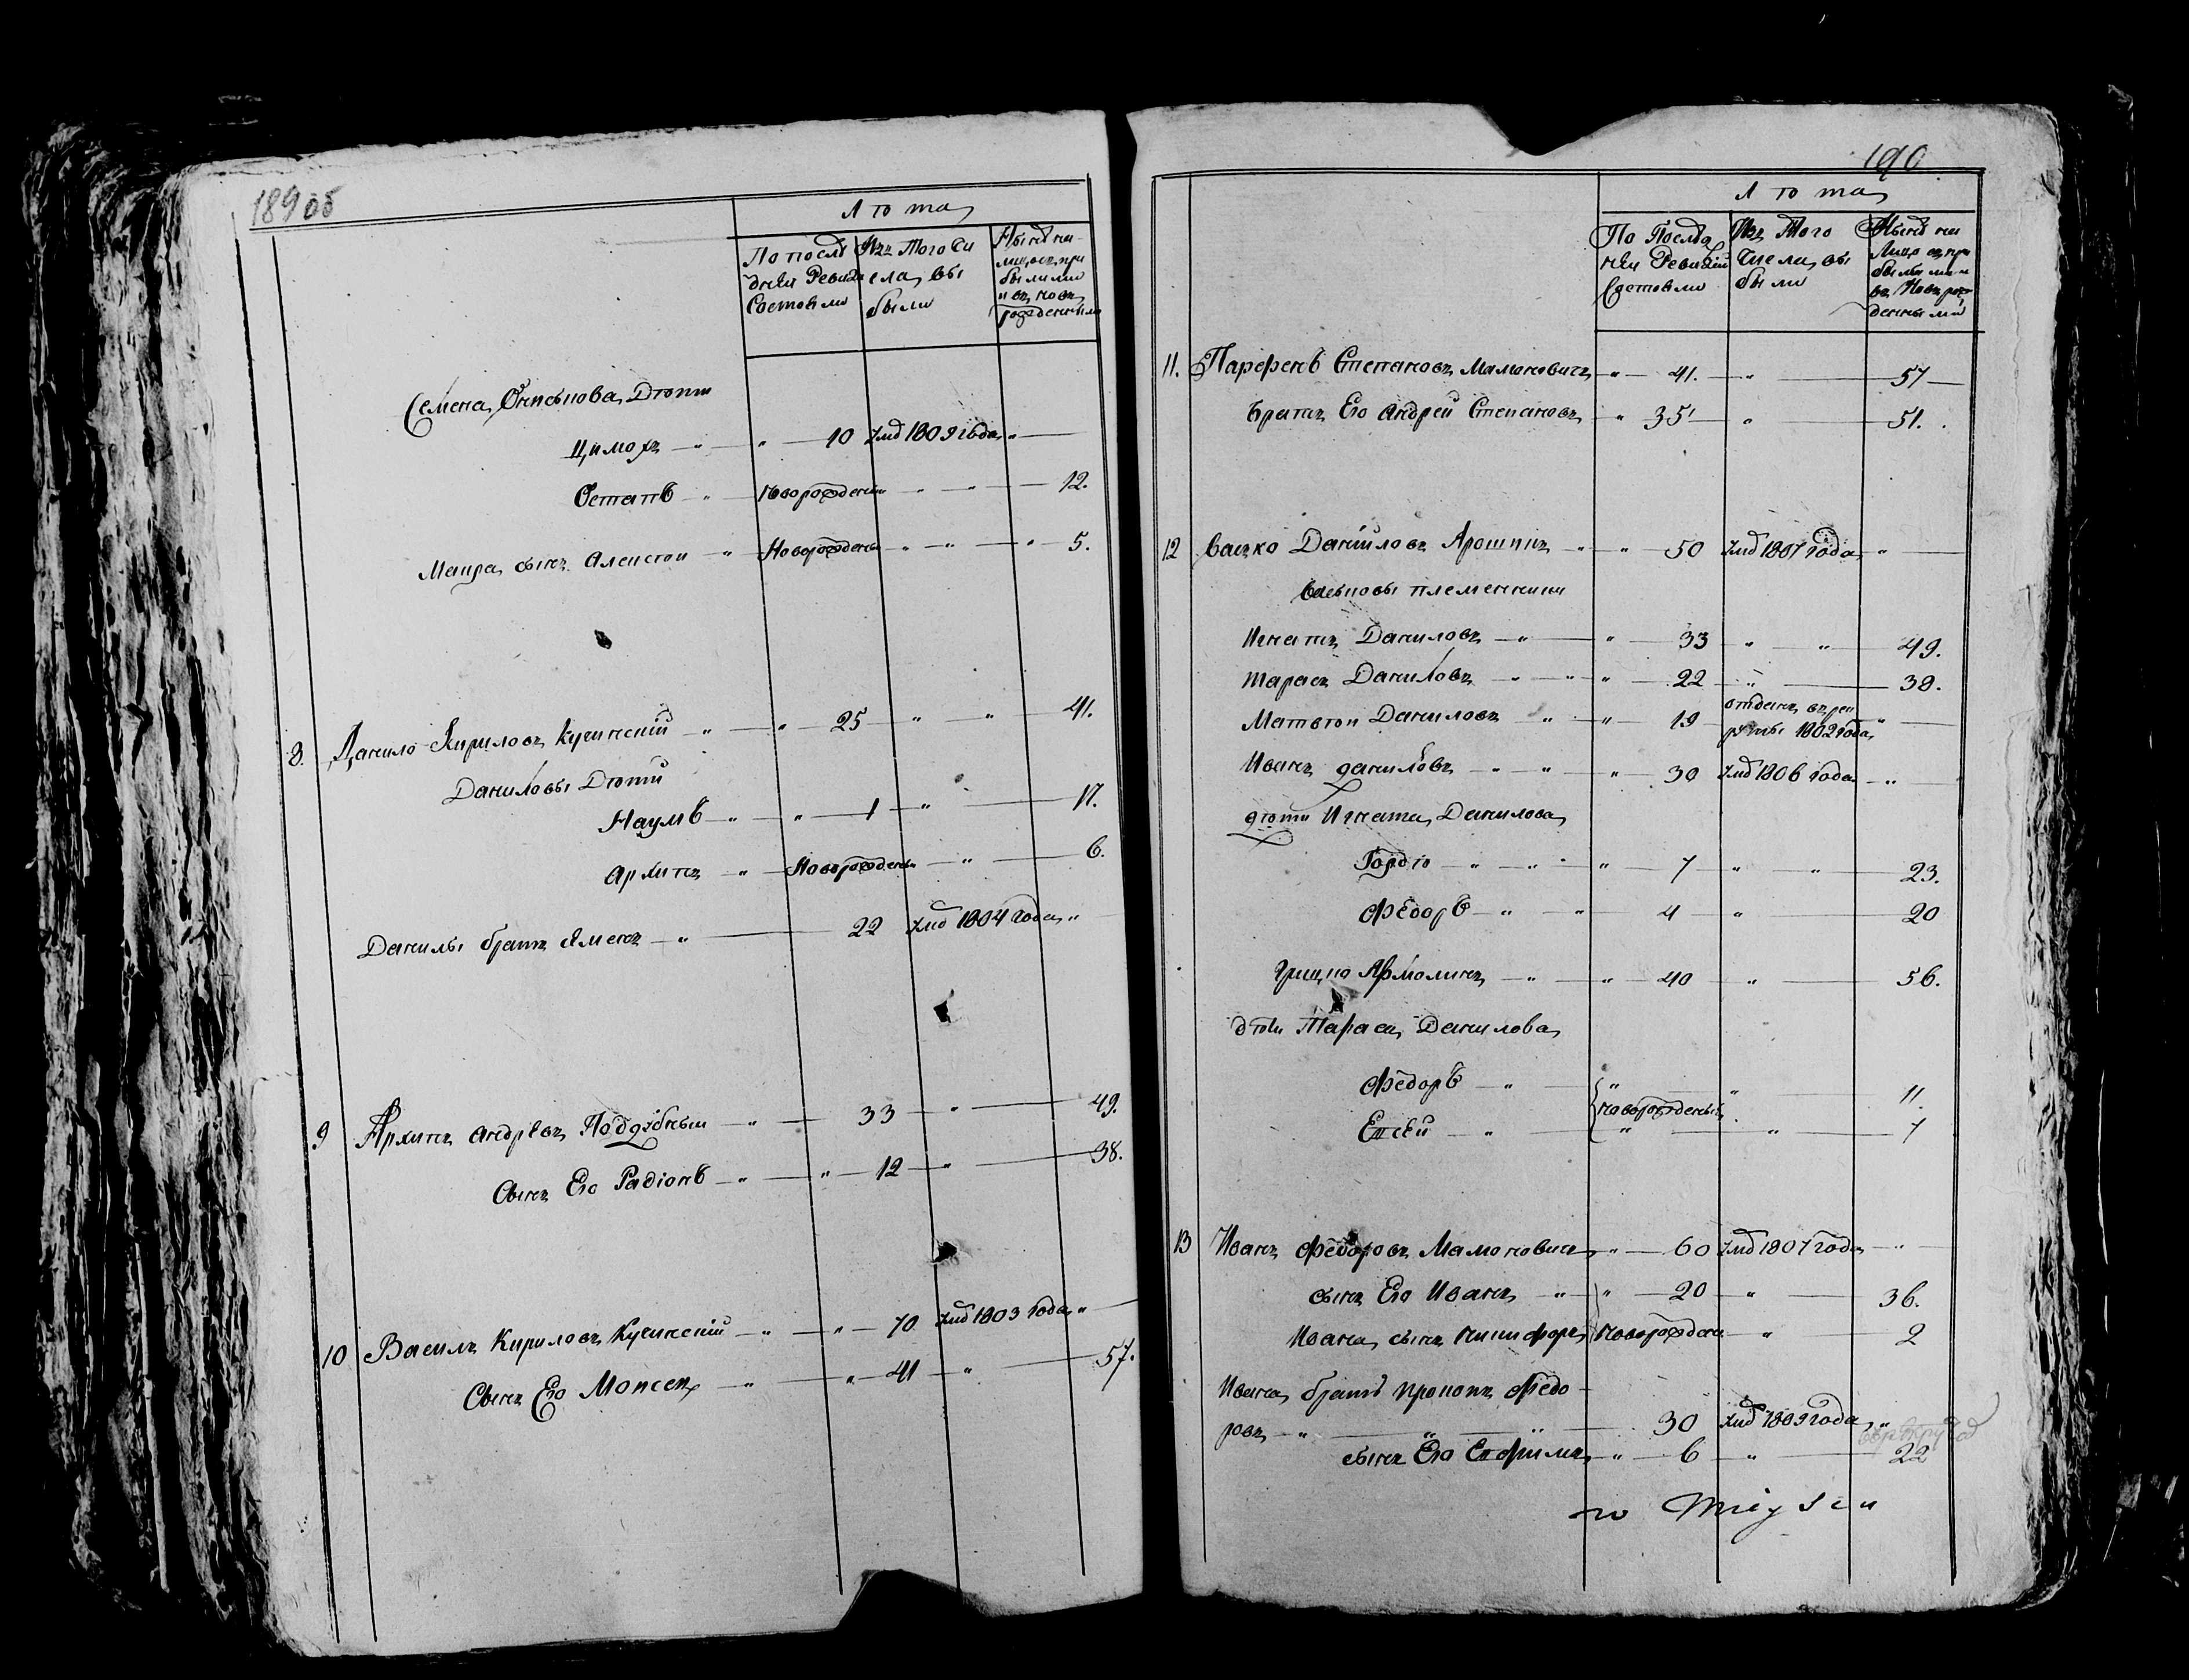 189 об
Лѣта
По послѣ
дней Ревизи
Состояли
Изъ того чи
сла, вы
были
Нынѣ на
лицо съ при
былыми
и въ новъ
рожденными
Семена, Дѣти
Цимохъ — " — " — 10 умѣ 1809 года " —
Остапъ — " — Новорожденъ — " — " — 12.
сынъ Алексѣй — " — Новорожденъ — " — " — 5.
8. Данило Кириловъ Кучинскій — " — " — 25 — " — " — 41.
Даниловы Дѣти
Наумъ — " — " — 1 — " — 17.
Архипъ — " — Новорожденъ — " — 6.
Данилы братъ — " — 22 умѣ 1804 года "
9 Архипъ Андрѣевъ — " — 33 — " — 49.
Сынъ Его Радіонъ — " — " — 12 — " — 38.
10 Василь Кириловъ Кучинскій — " — " — 70 умѣ 1803 года " —
Сынъ Его Моисей — " — " — 41 — " — 57.
190
Лѣта
По Послѣд
ней Ревизіи
Состояли
Изъ Того
Числа, вы
были
Нынѣ на
Лицо съ при
былыми и
въ Новъ рож
денными
11. Парфенъ Степановъ Мамоновичъ " — 41. — " — 57 —
Братъ Его Андрей Степановъ " 35 — " — 51.
12 Васько Даніиловъ — " — " — 50 умѣ 1807 года — " —
Васьковы племенники
Игнатъ Даниловъ — " — " — 33 — " — " — 49.
Тарасъ Даниловъ — " — " — " — 22 — " — 38.
Матвѣй Даниловъ — " — " — 19 отданъ въ рек
руты 1802 года, " —
Иванъ Даниловъ — " — " — " — 30 умѣ 1806 года — " —
дѣти Игната, Данилова,
Гордѣ — " — " — " — 7 — " — " — 23.
Федоръ — " — " — 4 — " — 20
— " — " — 40 — " — 56.
дѣти Тараса, Данилова,
Федоръ — " — " — " — 11.
Новорожденный
— " — " — " — 7
13 Иванъ Федоровъ Мамоновичъ " — 60 умѣ 1807 года — " —
сынъ Его Иванъ — " — " — 20 — " — 36.
Ивана, сынъ Никифоръ Новорожденъ — " — 2
Ивана, братъ Прокопъ Федо-
ровъ — " — " — " — 30 умѣ 1809 года, "
сынъ Его Ефимъ — " — 6 — " — 22